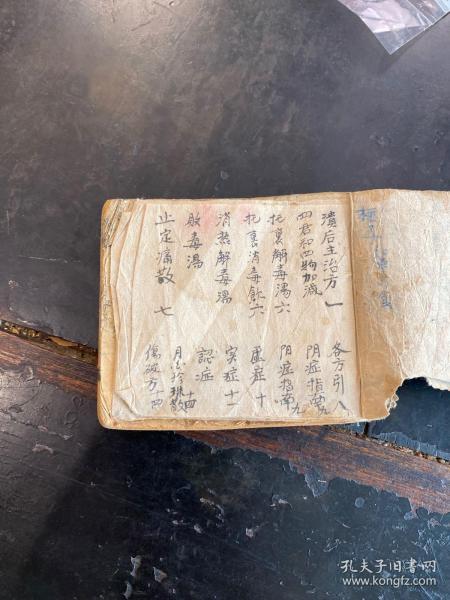 潰后主治方一
四君和四物加減
托裏解毒湯六
托裏消毒飲六
消熱解毒湯
敗毒湯
止定痛散 七
各方引八
阴症指南九
阳症指南九
虛症十
实症十一
認症
月白珍珠散十四
傷破方十四
孔夫子旧书网
www.kongfz.com